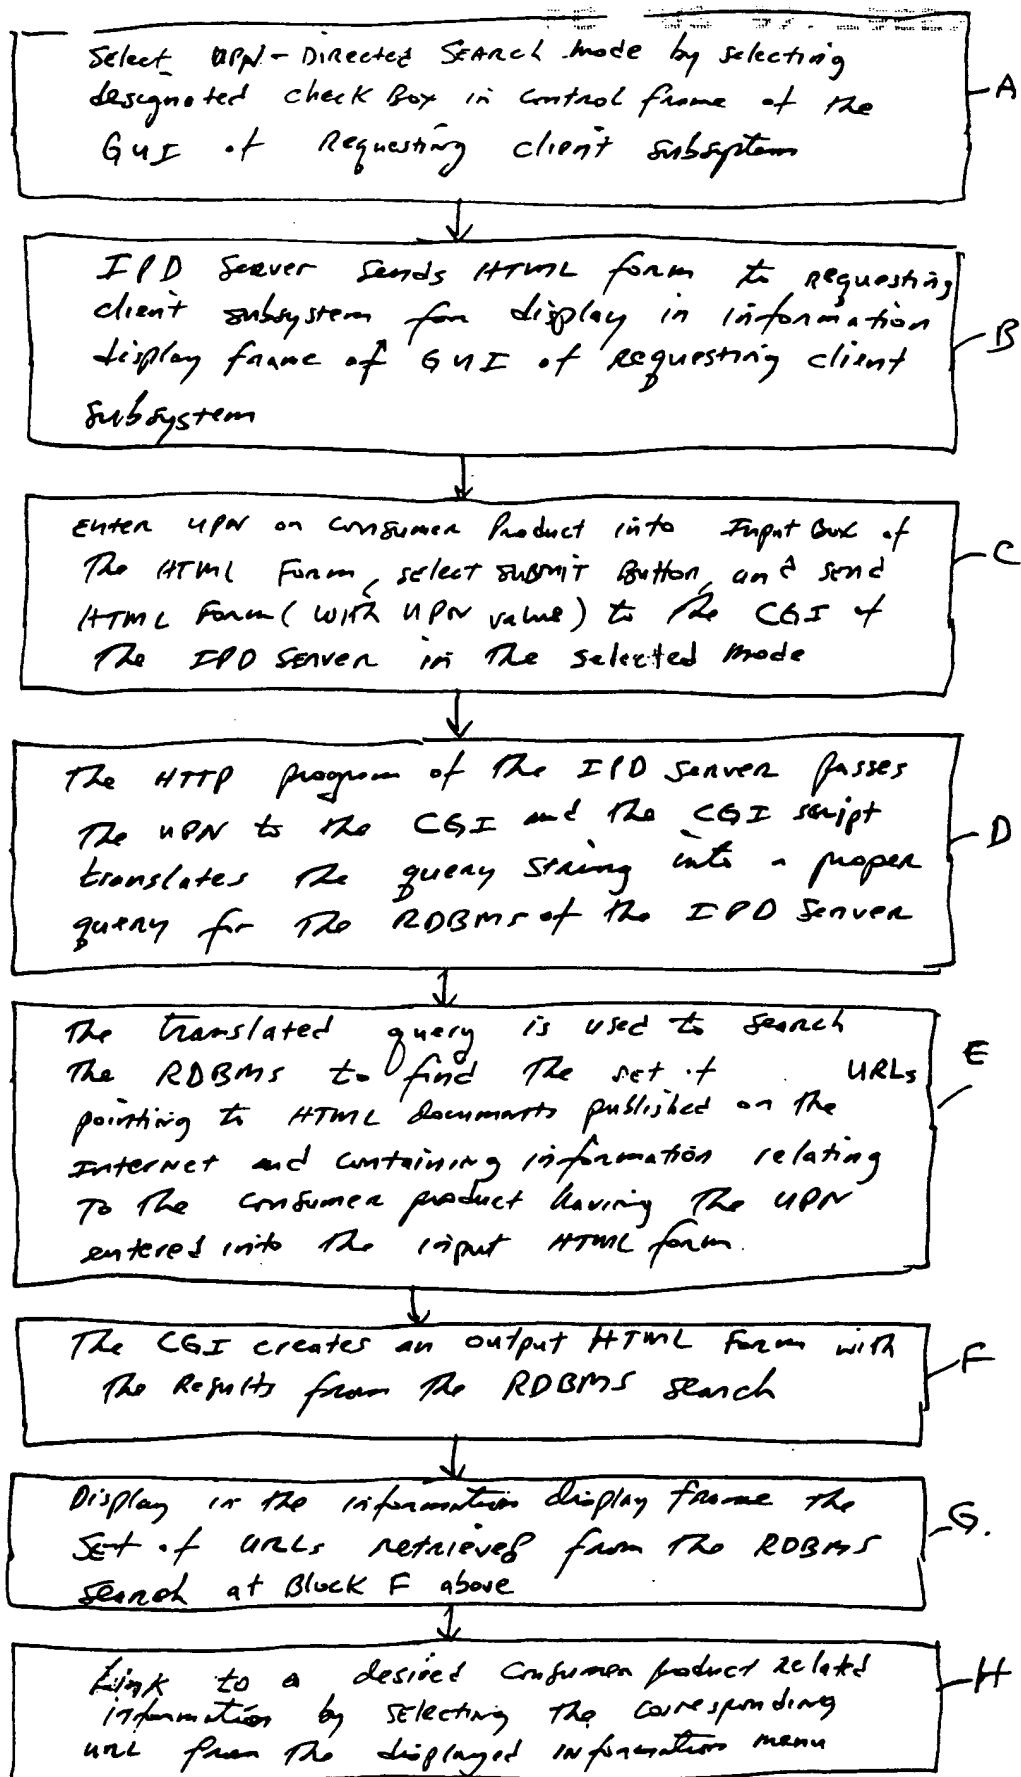 Select UPN-Directed Search mode by selecting
designated check Box in control frame of the
GUI of Requesting client subsystem
A
IPD Server sends HTML form to requesting
client subsystem for display in information
display frame of GUI of Requesting client
subsystem
B
Enter UPN on Consumer Product into Input Box of
The HTML Form, select SUBMIT Button, and send
HTML Form (with UPN value) to The CGI of
The IPD Server in The selected Mode
C
The HTTP program of The IPD Server passes
The UPN to the CGI and the CGI script
translates The query string into a proper
query for The RDBMS of the IPD Server
D
The translated query is used to search
The RDBMS to find The set of URLs
pointing to HTML documents published on The
Internet and containing information relating
To The consumer product having The UPN
entered into The input HTML form.
E
The CGI creates an output HTML Form with
The Results from The RDBMS search
F
Display in the information display frame the
Set of URLs retrieved from The RDBMS
search at Block F above
G.
Link to a desired Consumer product related
information by selecting The corresponding
URL from The displayed information menu
H